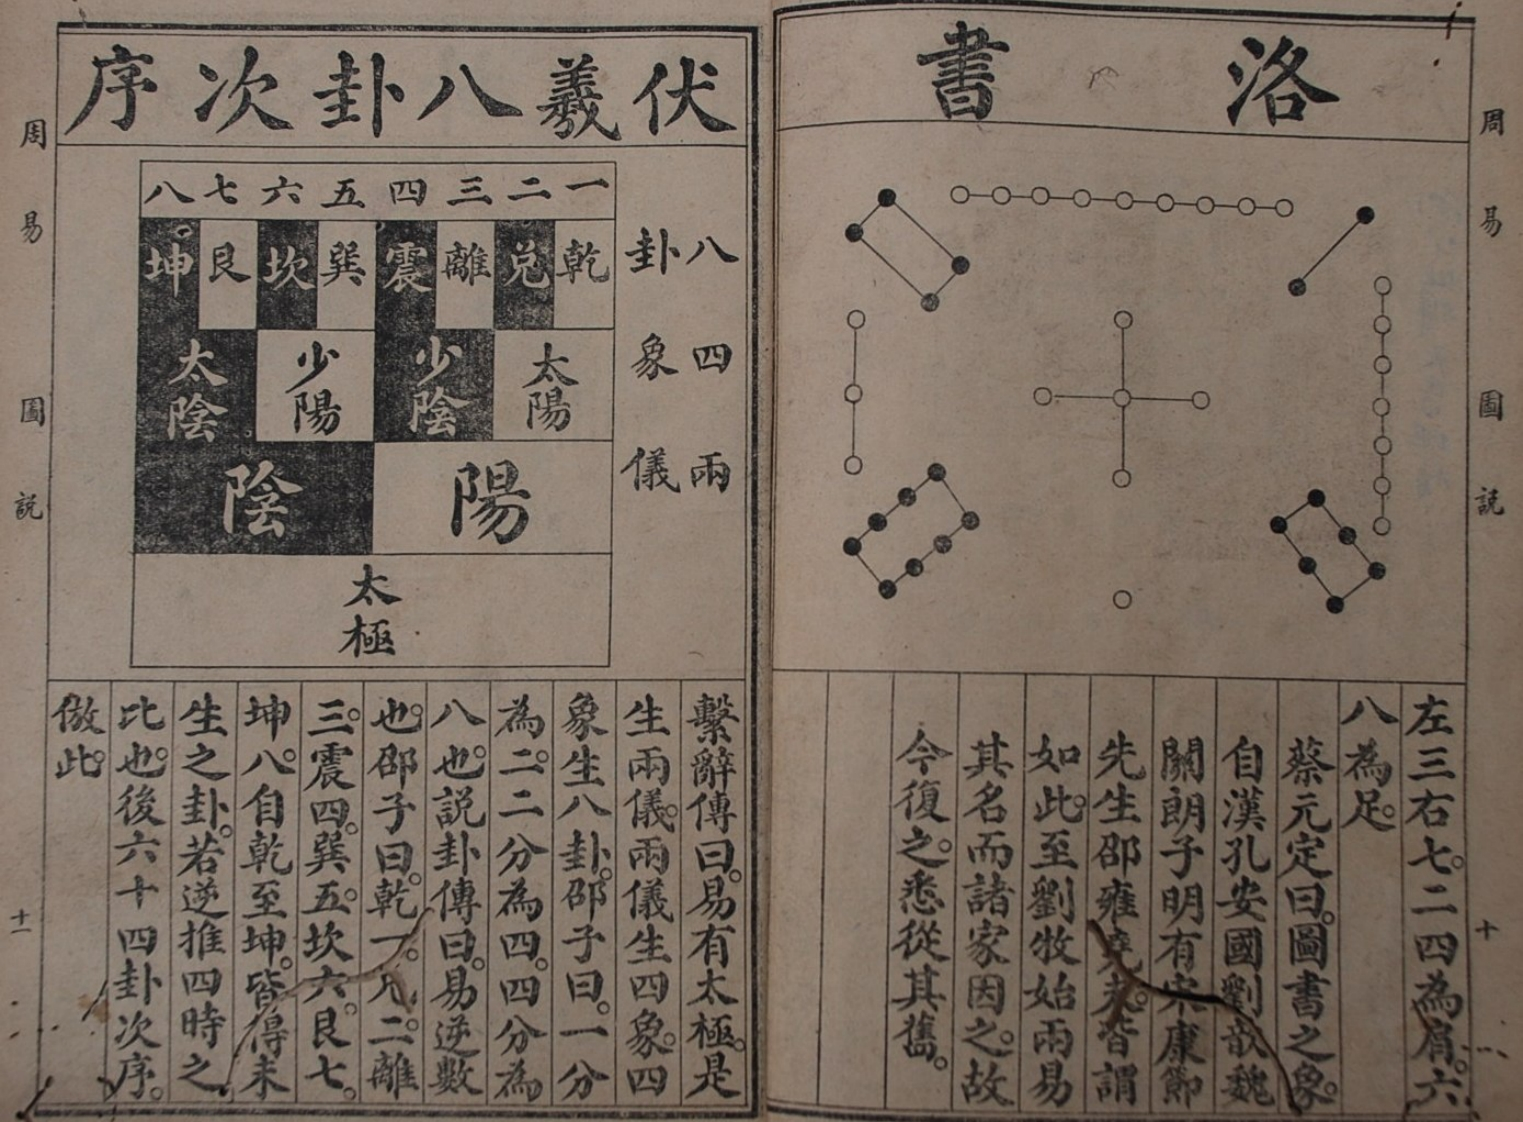 周易 圖說 十
洛書
左三右七。二四為肩。六
八為足。
蔡元定曰。圖書之象。
自漢孔安國劉歆魏
關朗子明有宋康節
先生邵雍堯夫。皆謂
如此。至劉牧始兩易
其名而諸家因之。故
今復之。悉從其舊。
伏羲八卦次序
一 二 三 四 五 六 七 八
乾 兌 離 震 巽 坎 艮 坤
八卦
太陽 少陰 少陽 太陰
四象
陽 陰
兩儀
太極
繫辭傳曰。易有太極。是
生兩儀。兩儀生四象。四
象生八卦。邵子曰。一分
為二。二分為四。四分為
八也。說卦傳曰。易逆數
也。邵子曰。乾一。兌二。離
三。震四。巽五。坎六。艮七。
坤八。自乾至坤。皆得未
生之卦。若逆推四時之
比也。後六十四卦次序。
倣此。
周易 圖說 十一